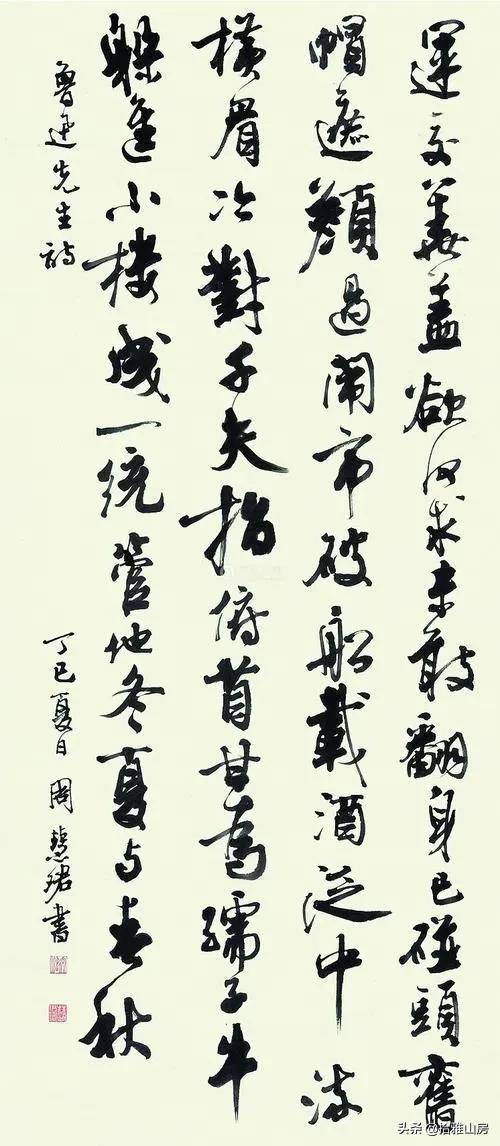 運交華蓋欲何求未敢翻身已碰頭舊
帽遮顔過鬧市破船載酒泛中流
橫眉冷對千夫指俯首甘為孺子牛
躲進小樓成一統管他冬夏与春秋
魯迅先生詩
丁巳夏日 周慧珺書
头条 @拾雅山房